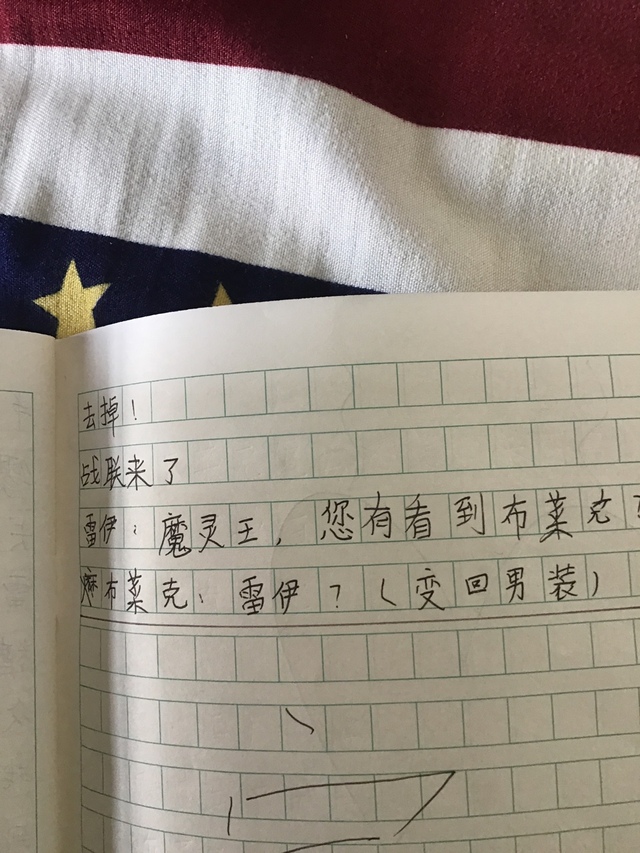 去掉！
战联来了
雷伊：魔灵王，您有看到布莱克
布莱克：雷伊？（变回男装）